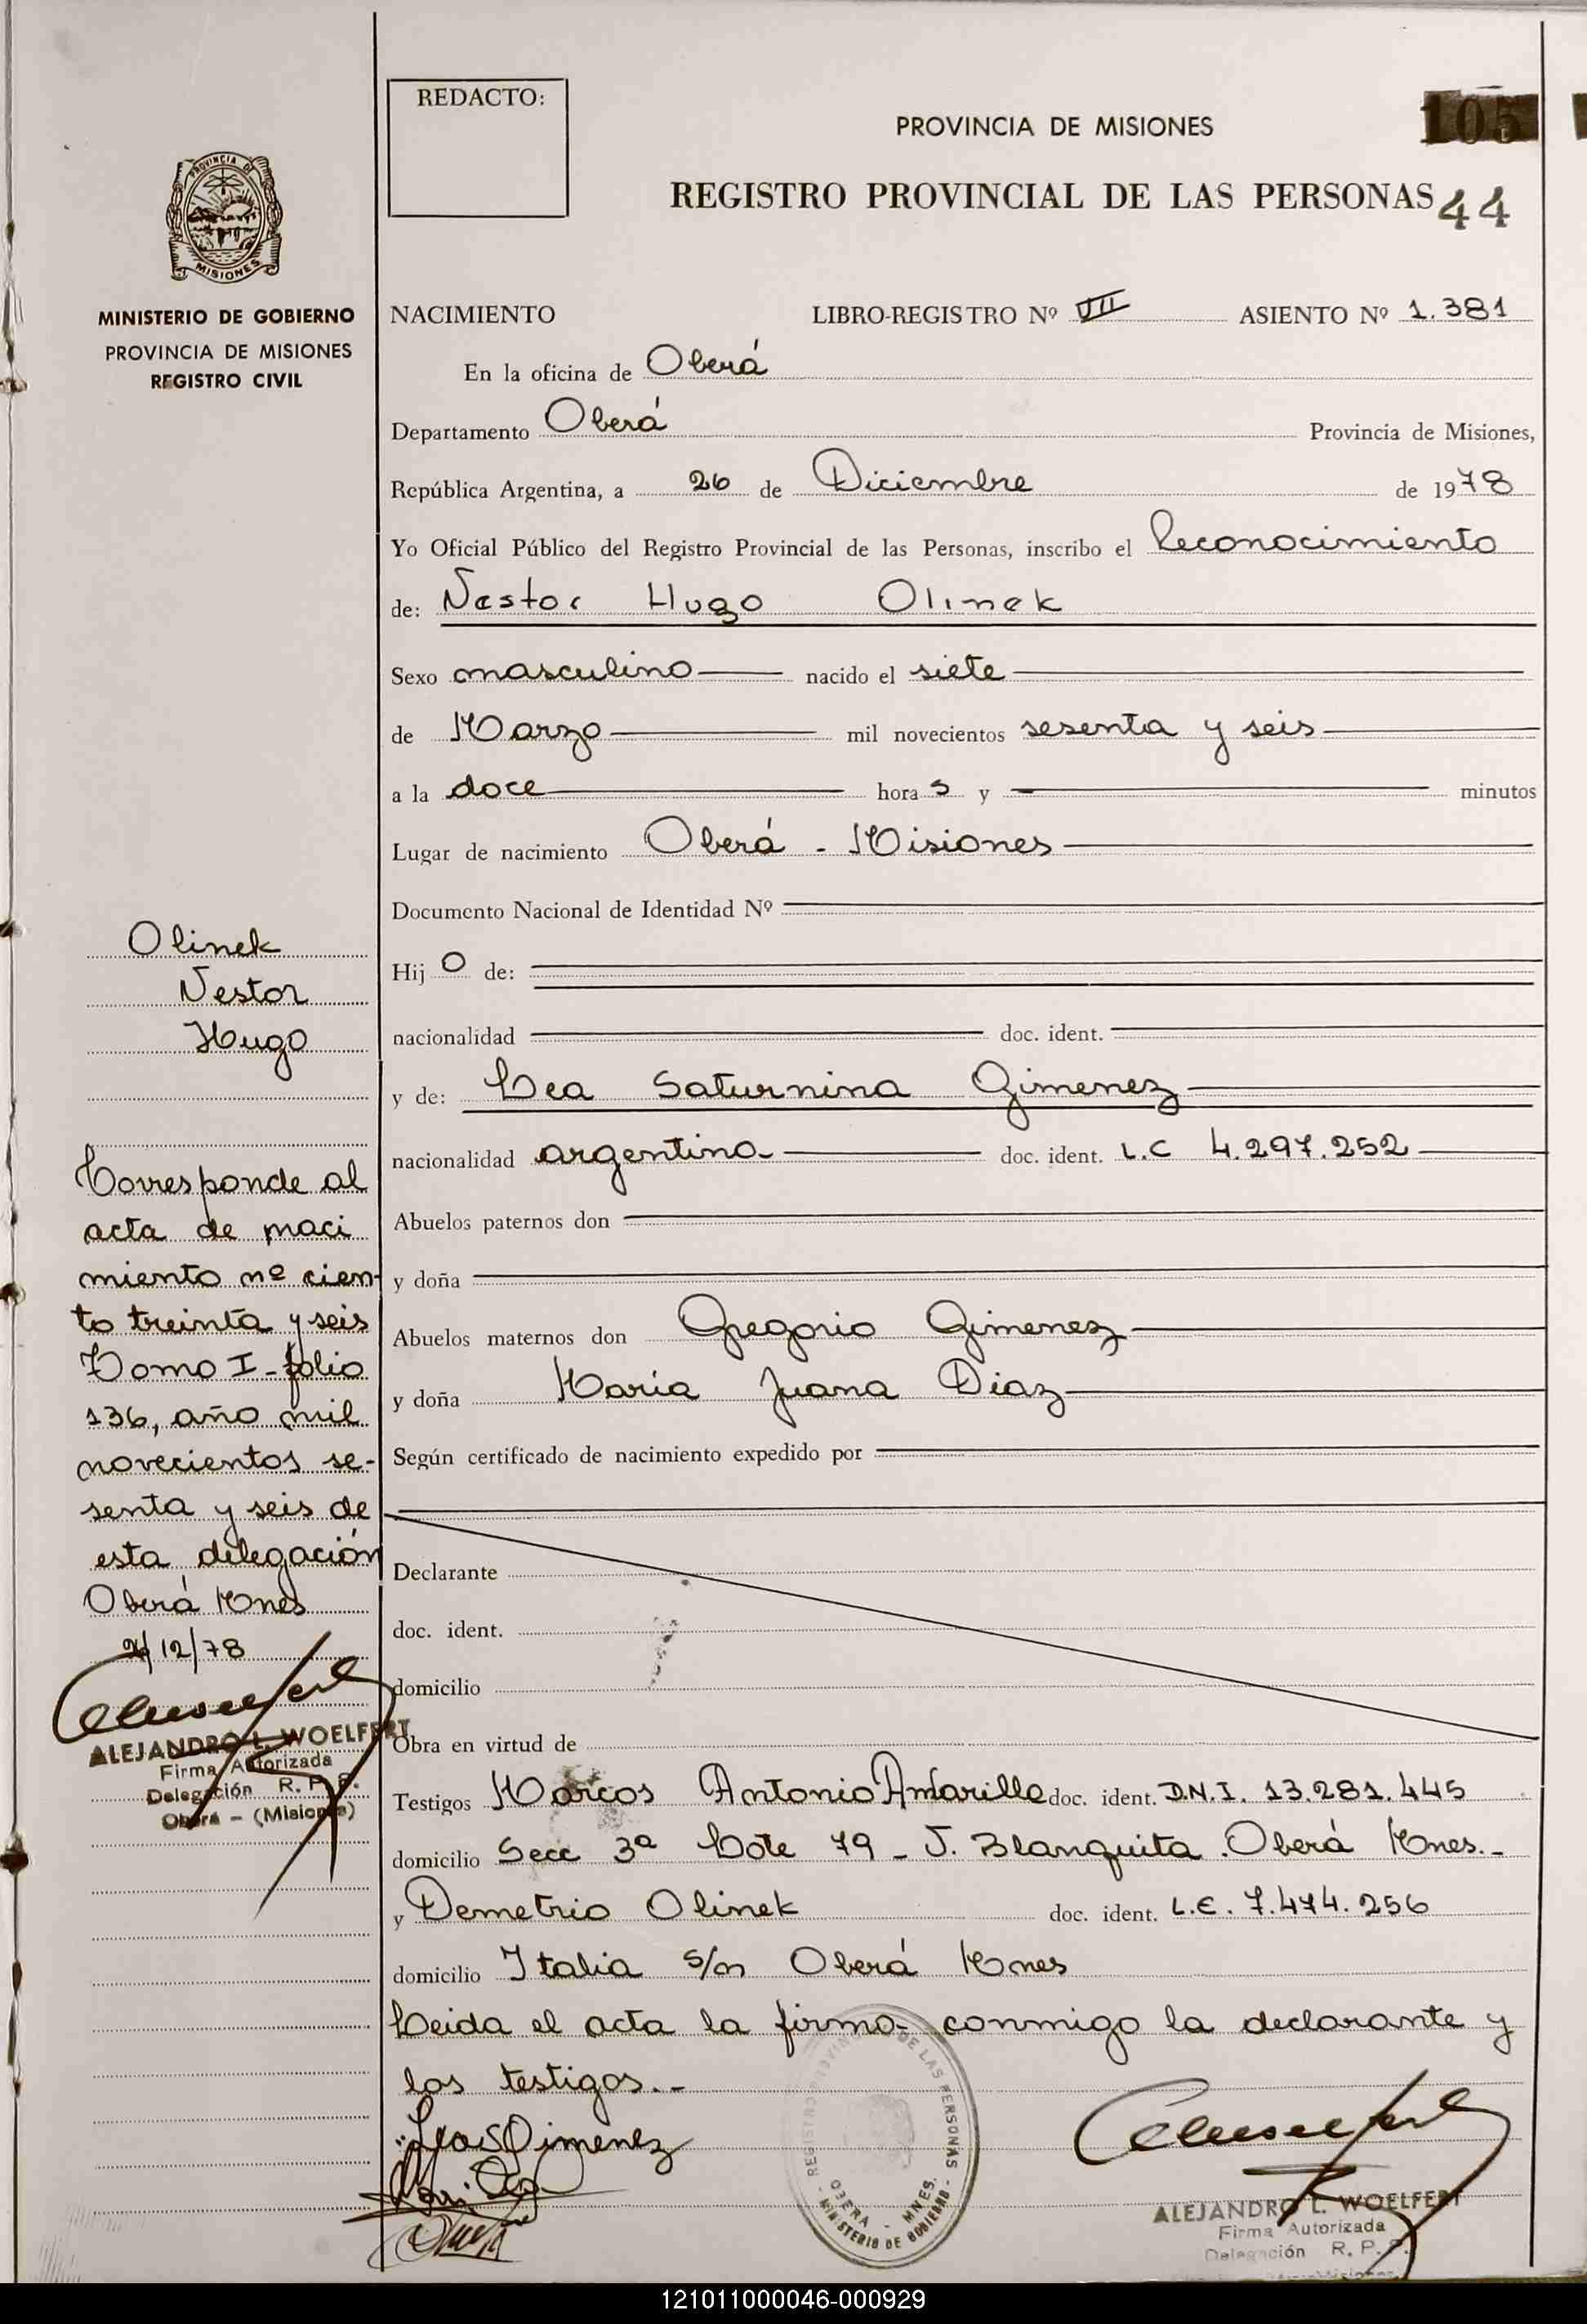 REDACTO:
PROVINCIA DE MISIONES
105
REGISTRO PROVINCIAL DE LAS PERSONAS 44
PROVINCIA DE MISIONES
MINISTERIO DE GOBIERNO
PROVINCIA DE MISIONES
REGISTRO CIVIL
NACIMIENTO LIBRO-REGISTRO Nº VII ASIENTO Nº 1.381
En la oficina de Oberá
Departamento Oberá Provincia de Misiones,
República Argentina, a 26 de Diciembre de 1978
Yo Oficial Público del Registro Provincial de las Personas, inscribo el Reconocimiento
de: Nestor Hugo Olinek
Sexo masculino nacido el siete
de Marzo mil novecientos sesenta y seis
a la doce horas y minutos
Lugar de nacimiento Oberá - Misiones
Documento Nacional de Identidad Nº
Hijo de:
nacionalidad doc. ident.
y de: Lea Saturnina Gimenez
nacionalidad argentina doc. ident. L.C 4.297.252
Abuelos paternos don
y doña
Abuelos maternos don Gregorio Gimenez
y doña Maria Juana Diaz
Según certificado de nacimiento expedido por
Declarante
doc. ident.
domicilio
Obra en virtud de
Testigos Marcos Antonio Amarilla doc. ident. D.N.I. 13.281.445
domicilio Secc 3ª Lote 79 - V. Blanquita. Oberá Mnes.-
y Demetrio Olinek doc. ident. L.E. 7.474.256
domicilio Italia s/n Oberá Mnes
Leida el acta la firma conmigo la declarante y
los testigos.-
Olinek
Nestor
Hugo
Corresponde al
acta de naci
miento nº cien-
to treinta y seis
Tomo I - folio
136, año mil
novecientos se-
senta y seis de
esta delegación
Oberá Mnes
26/12/78
ALEJANDRO L. WOELFERT
Firma Autorizada
Delegación R. P. P.
Oberá - (Misiones)
Lea S Gimenez
REGISTRO PROVINCIAL DE LAS PERSONAS
OBERA - MNES.
MINISTERIO DE GOBIERNO
ALEJANDRO L. WOELFERT
Firma Autorizada
Delegación R. P. P.
121011000046-000929